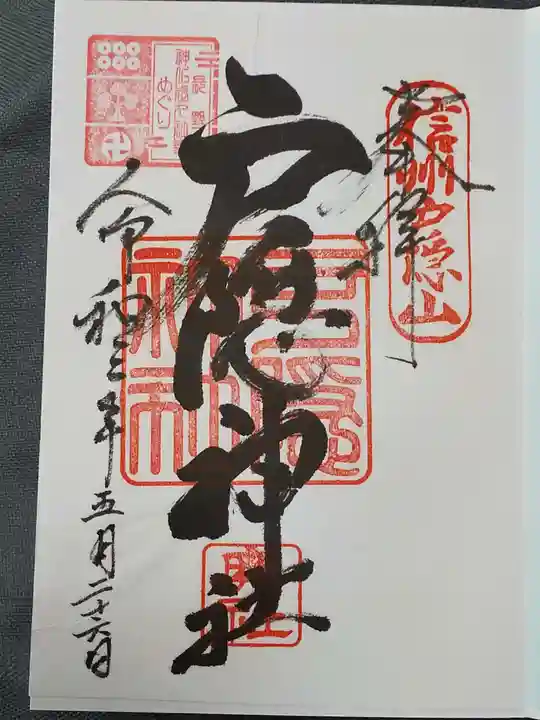 信州戸隠山
奉拝
戸隠神社
戸隠
神社
令和三年五月二十六日
長野
めぐり
卍